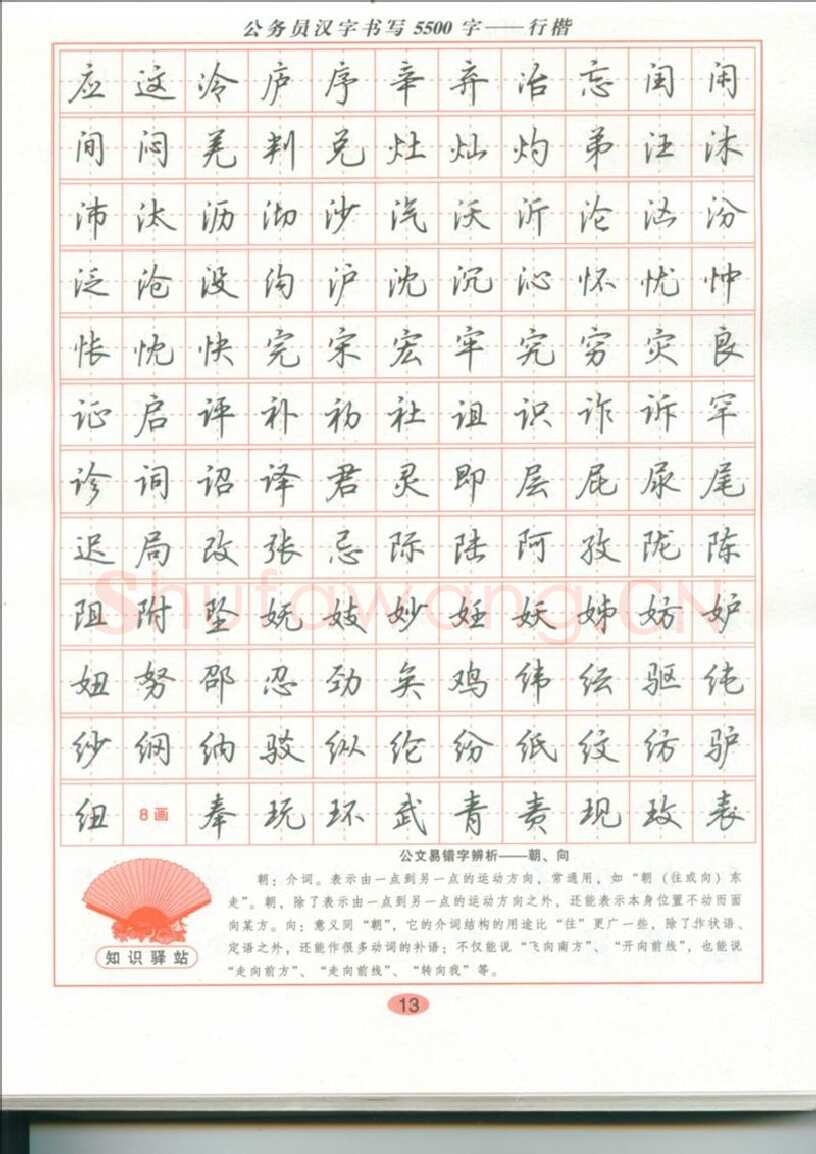 公务员汉字书写 5500 字——行楷
应 这 冷 庐 序 辛 弃 冶 忘 闰 闲
间 闷 羌 判 兑 灶 灿 灼 弟 汪 沐
沛 汰 沥 沏 沙 汽 沃 沂 沦 汹 汾
泛 沧 没 沟 沪 沈 沉 沁 怀 忧 忡
怅 忱 快 完 宋 宏 牢 究 穷 灾 良
证 启 评 补 初 社 诅 识 诈 诉 罕
诊 词 诏 译 君 灵 即 层 屁 尿 尾
迟 局 改 张 忌 际 陆 阿 孜 陇 陈
阻 附 坠 妩 妓 妙 妊 妖 姊 妨 妒
妞 努 邵 忍 劲 矣 鸡 纬 纭 驱 纯
纱 纲 纳 驳 纵 纶 纷 纸 纹 纺 驴
纽 8画 奉 玩 环 武 青 责 现 玫 表
Shufawang.CN
公文易错字辨析——朝、向
朝：介词。表示由一点到另一点的运动方向，常通用，如“朝（往或向）东
走”。朝，除了表示由一点到另一点的运动方向之外，还能表示本身位置不动而面
向某方。向：意义同“朝”，它的介词结构的用途比“往”更广一些，除了作状语、
定语之外，还能作很多动词的补语；不仅能说“飞向南方”、“开向前线”，也能说
“走向前方”、“走向前线”、“转向我”等。
知识驿站
13